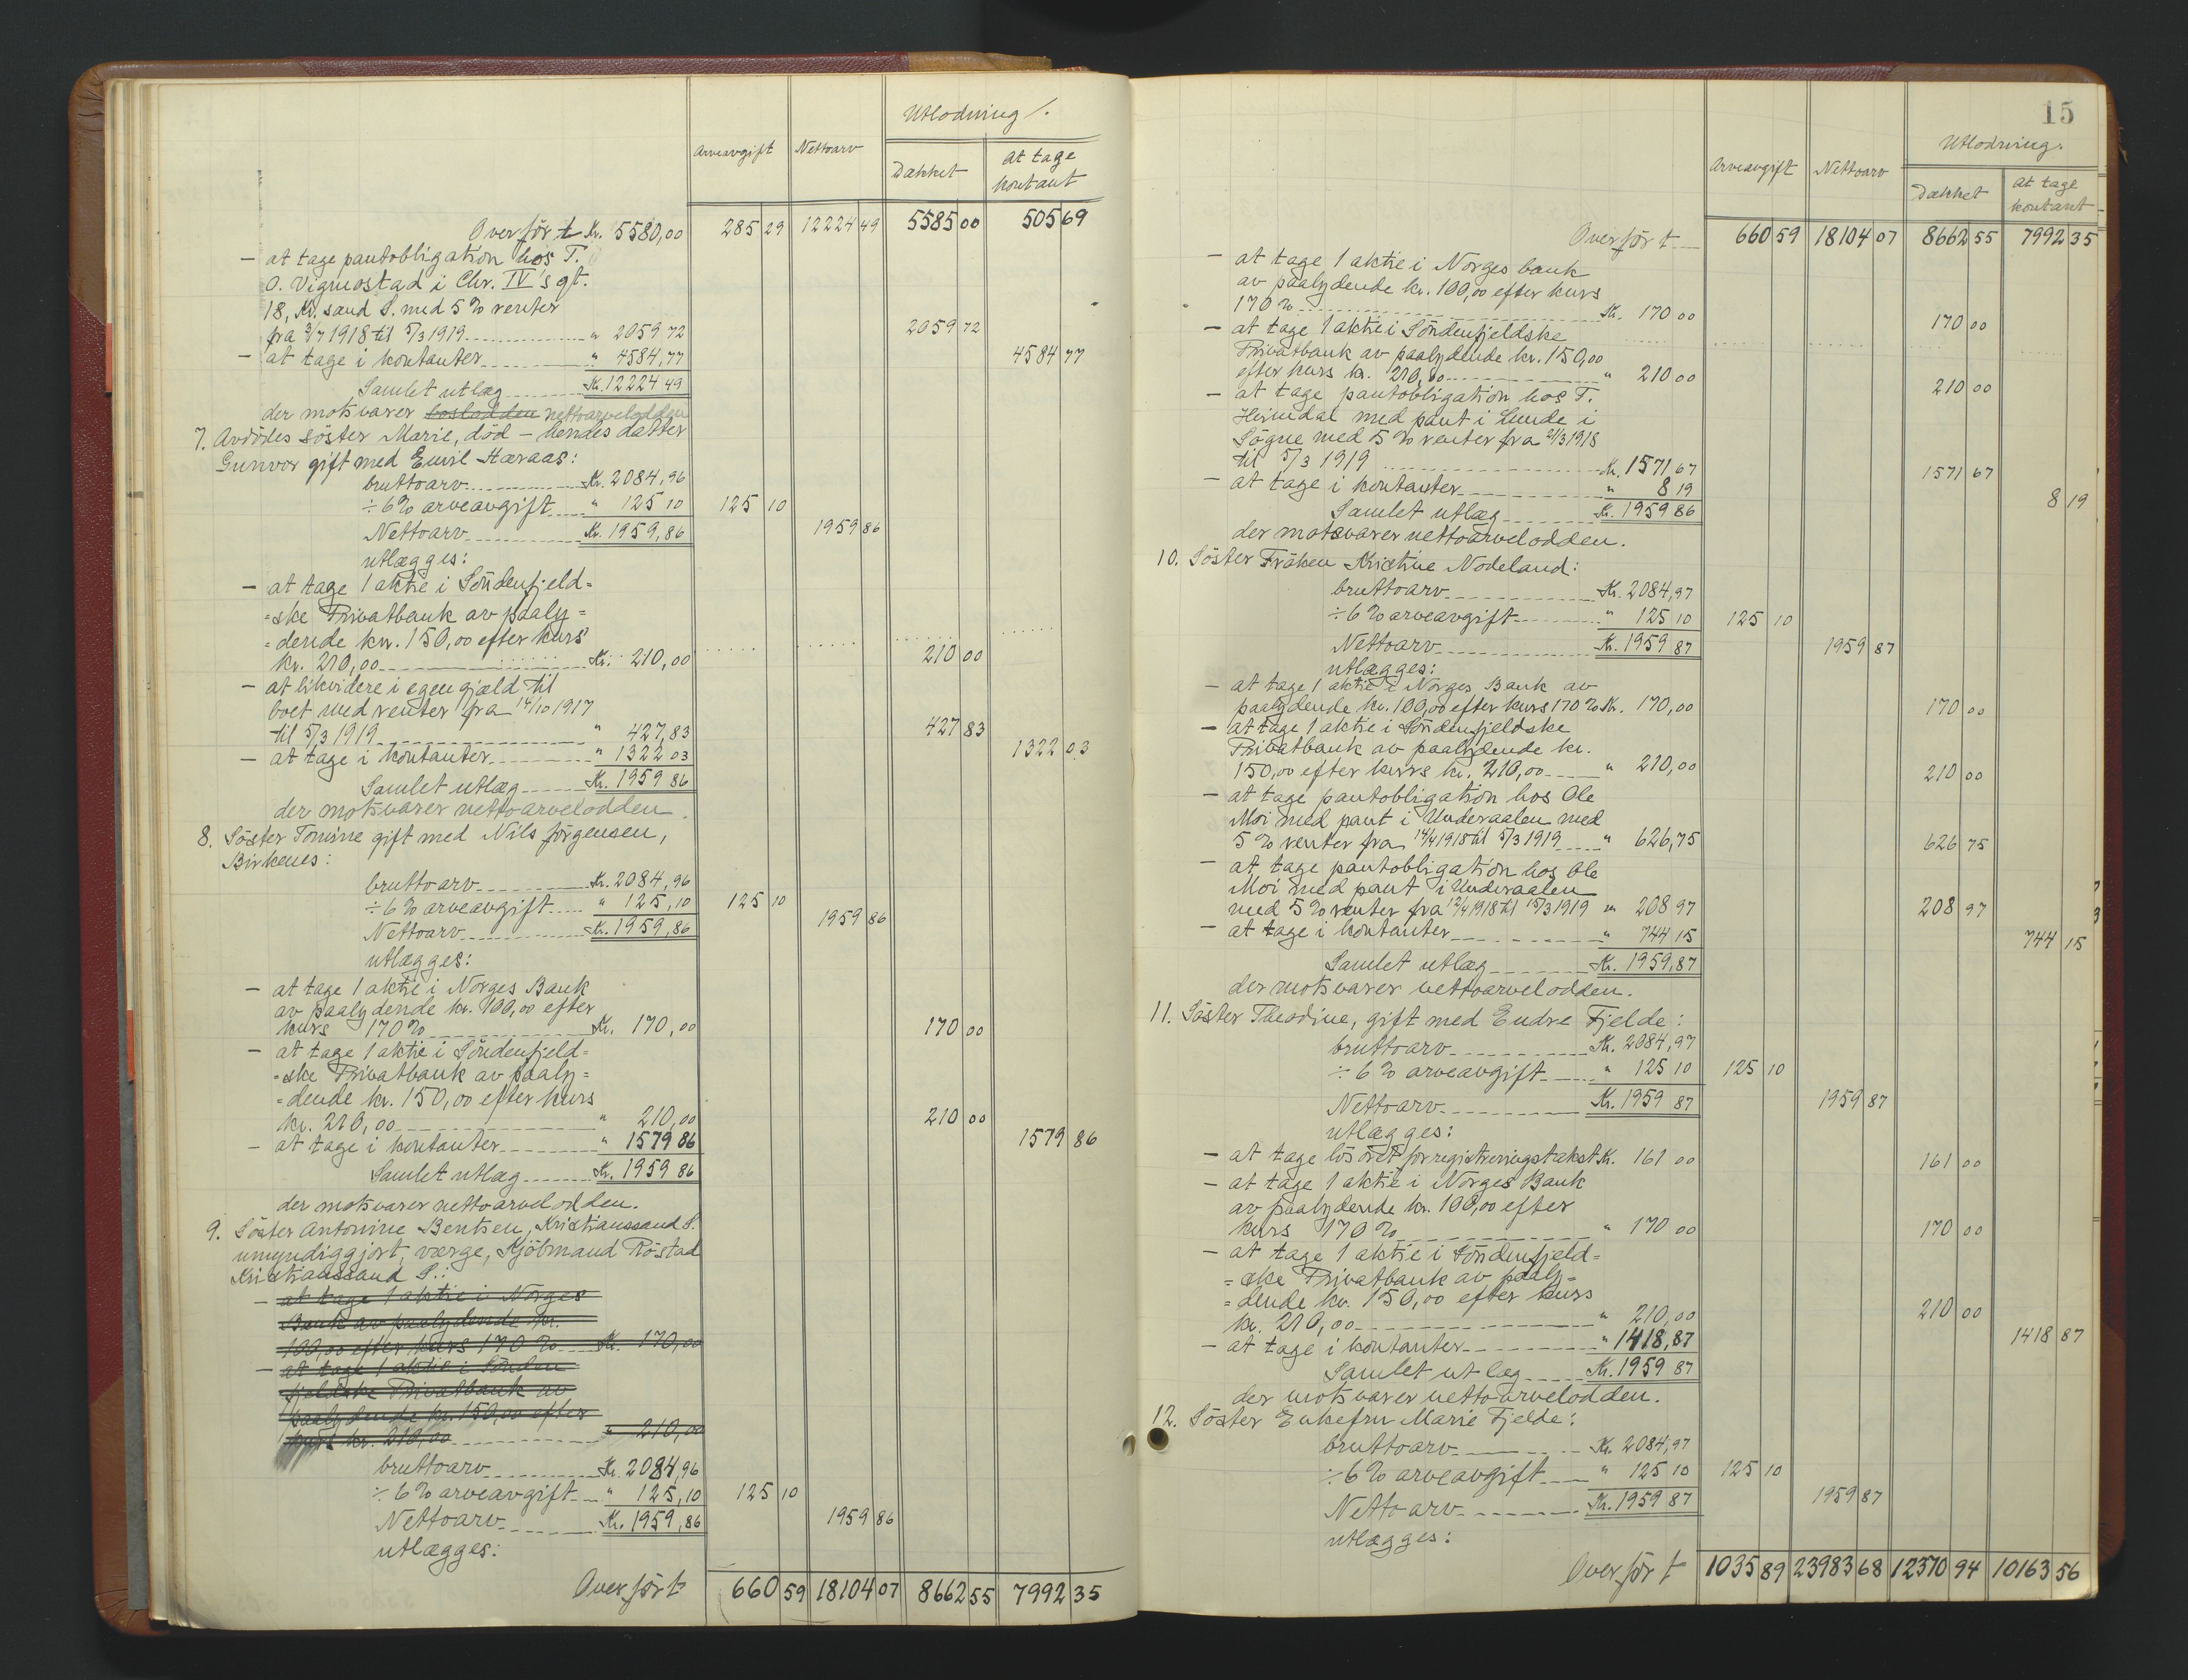 Utlodning /.
Arveavgift Nettoarv Dækket At tage kontant
Overført Kr. 5580,00 285 29 12224 49 5585 00 505 69
— at tage pantobligation hos T.
O. Vigmostad i Chr. IV's gt.
18, Kr.sand S. med 5% renter
fra 3/7 1918 til 5/3 1919 " 2059 72 2059 72
— at tage i kontanter " 4584,77 4584 77
Samlet utlæg Kr. 12224 49
der motsvarer boslodden nettoarvelodden
7. Avdødes søster Marie, død — hendes datter
Gunvor gift med Emil Haraas:
bruttoarv Kr. 2084,96
÷ 6% arveavgift " 125 10 125 10
Nettoarv Kr. 1959,86 1959 86
utlægges:
— at tage 1 aktie i Söndenfjeld=
=ske Privatbank av paaly=
=dende kr. 150,00 efter kurs
kr. 210,00 Kr. 210,00 210 00
— at likvidere i egen gjæld til
boet med renter fra 14/10 1917
til 5/3 1919 " 427,83 427 83
— at tage i kontanter " 1322 03 1322 03
Samlet utlæg Kr. 1959 86
der motsvarer nettoarvelodden.
8. Söster Tomine gift med Nils Jørgensen,
Birkenes:
bruttoarv Kr. 2084,96
÷ 6% arveavgift " 125,10 125 10
Nettoarv Kr. 1959,86 1959 86
utlægges:
— at tage 1 aktie i Norges Bank
av paalydende kr. 100,00 efter
kurs 170% Kr. 170,00 170 00
— at tage 1 aktie i Söndenfjeld=
=ske Privatbank av paaly=
=dende kr. 150,00 efter kurs
kr. 210,00 " 210,00 210 00
— at tage i kontanter " 1579 86 1579 86
Samlet utlæg Kr. 1959 86
der motsvarer nettoarvelodden.
9. Söster Antonine Bentsen, Kristianssand S.
umyndiggjort, værge, Kjöbmand Röstad
Kristianssand S.:
— at tage 1 aktie i Norges
Bank av paalydende kr.
100,00 efter kurs 170% Kr. 170,00
— at tage 1 aktie i Sönden
fjeldske Privatbank av
paalydende kr. 150,00 efter
kurs kr. 210,00 " 210,00
bruttoarv Kr. 2084,96
÷ 6% arveavgift " 125,10 125 10
Nettoarv Kr. 1959,86 1959 86
utlægges:
Overført 660 59 18104 07 8662 55 7992 35
15
Utlodning.
Arveavgift Nettoarv Dækket At tage kontant
Overført 660 59 18104 07 8662 55 7992 35
— at tage 1 aktie i Norges bank
av paalydende kr. 100,00 efter kurs
170% Kr. 170 00 170 00
— at tage 1 aktie i Söndenfjeldske
Privatbank av paalydende kr. 150,00
efter kurs kr. 210,00 " 210 00 210 00
— at tage pantobligation hos T.
Heimdal med pant i Lunde i
Sögne med 5% renter fra 21/3 1918
til 5/3 1919 Kr. 1571,67 1571 67
— at tage i kontanter " 8 19 8 19
Samlet utlæg Kr. 1959 86
der motsvarer nettoarvelodden.
10. Söster Fröken Kristine Nodeland:
bruttoarv Kr. 2084,97
÷ 6% arveavgift " 125 10 125 10
Nettoarv Kr. 1959 87 1959 87
utlægges:
— at tage 1 aktie i Norges Bank av
paalydende kr. 100,00 efter kurs 170% Kr. 170,00 170 00
— at tage 1 aktie i Söndenfjeldske
Privatbank av paalydende kr.
150,00 efter kurs kr. 210,00 " 210,00 210 00
— at tage pantobligation hos Ole
Moi med pant i Underaalen med
5% renter fra 14/4 1918 til 5/3 1919 " 626,75 626 75
— at tage pantobligation hos Ole
Moi med pant i Underaalen
med 5% renter fra 12/4 1918 til 15/3 1919 " 208 97 208 97
— at tage i kontanter " 744 15 744 15
Samlet utlæg Kr. 1959,87
der motsvarer nettoarvelodden.
11. Söster Theodine, gift med Endre Fjelde:
bruttoarv Kr. 2084,97
÷ 6% arveavgift " 125 10 125 10
Nettoarv Kr. 1959 87 1959 87
utlægges:
— at tage lösöret for registreringstakst Kr. 161 00 161 00
— at tage 1 aktie i Norges Bank
av paalydende kr. 100,00 efter
kurs 170% " 170 00 170 00
— at tage 1 aktie i Söndenfjeld=
=ske Privatbank av paaly=
=dende kr. 150,00 efter kurs
kr. 210,00 " 210,00 210 00
— at tage i kontanter " 1418,87 1418 87
Samlet utlæg Kr. 1959 87
der motsvarer nettoarvelodden.
12. Söster Enkefru Marie Fjelde:
bruttoarv Kr 2084,97
÷ 6% arveavgift " 125 10 125 10
Nettoarv Kr. 1959 87 1959 87
utlægges:
Overført 1035 89 23983 68 12370 94 10163 56